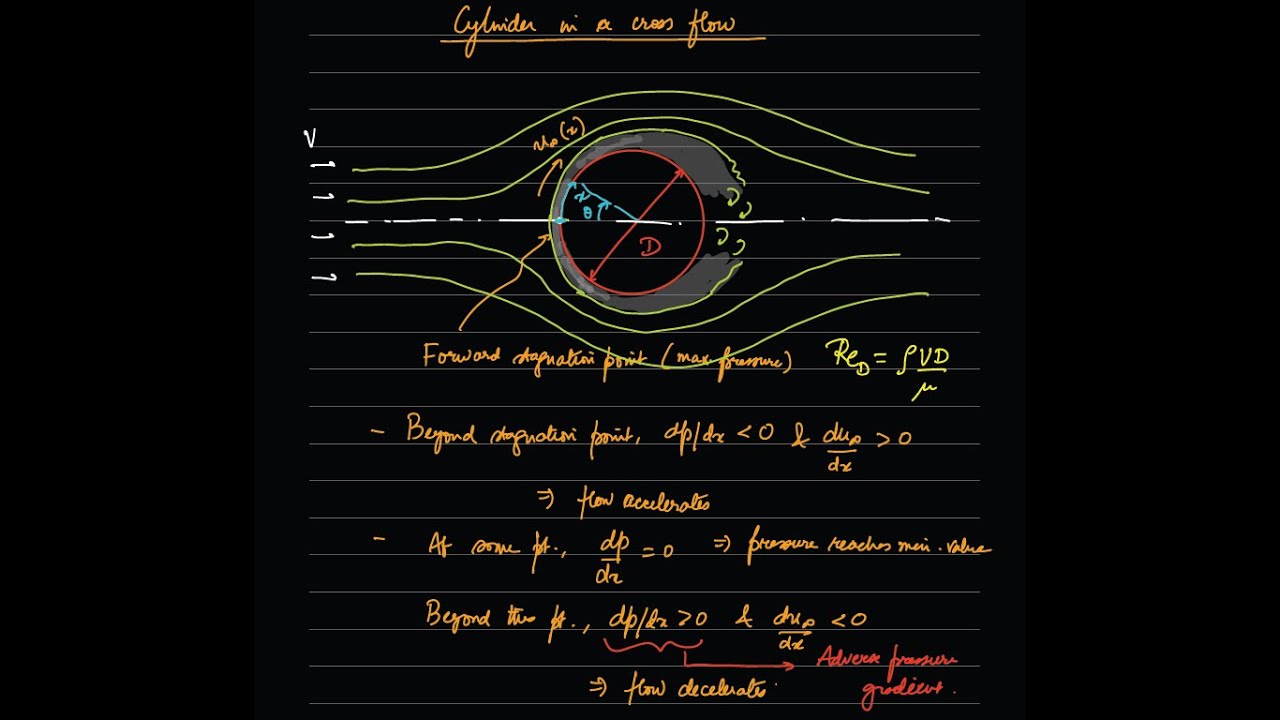 Cylinder in a cross flow
V
u∞(x)
x
θ
D
Forward stagnation point (max. pressure)
Re_D = ρVD/μ
- Beyond stagnation point, dp/dx < 0 & du∞/dx > 0
⇒ flow accelerates
- At some pt., dp/dx = 0 ⇒ pressure reaches min. value
Beyond this pt., dp/dx > 0 & du∞/dx < 0
Adverse pressure
⇒ flow decelerates.
gradient.